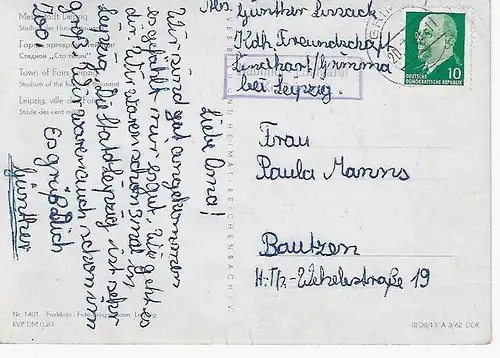 Messestadt Leipzig
Stadion der Hunderttausend
Стадион «Сто тысяч»
Town of Fairs Leipzig
Stadium of the hundred thousand
Leipzig, ville de Foires
Stade des cent mille
Liebe Oma!
Wir sind gut angekommen
es gefällt mir so gut. Wie geht es
dir. Wir waren schon 3 mal in
Leipzig. Die Stadt Leipzig ist sehr
groß. Wir waren auch schon im
Zoo.
Es grüßt dich
Günther
Nr 1401
EVP DM 0,20
VERLAG BILD UND HEIMAT · REICHENBACH I. V.
Abs. Günther Lissack
Kdh. Freundschaft
Lindhart/Grimma
bei Leipzig.
DEUTSCHE
DEMOKRATISCHE REPUBLIK
10
Frau
Paula Manns
Bautzen
19
III/26/13 A 3/62 DDR